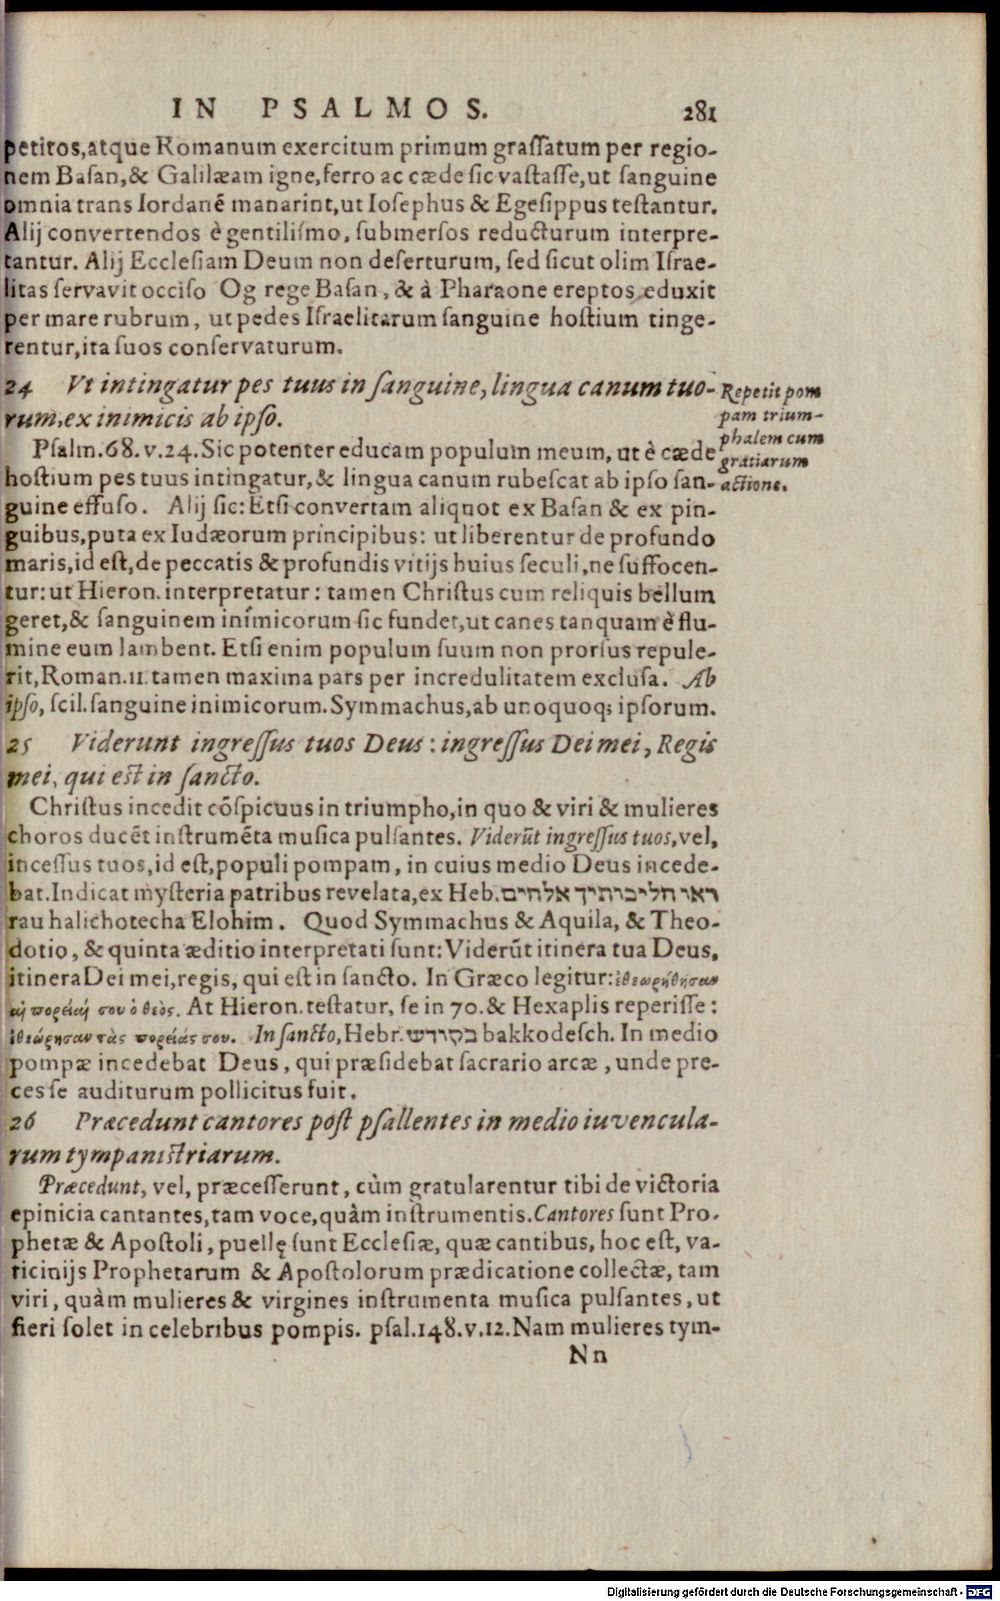 IN PSALMOS. 281
petitos,atque Romanum exercitum primum grassatum per regio-
nem Basan,& Galilæam igne,ferro ac cæde sic vastasse,ut sanguine
omnia trans Iordanẽ manarint,ut Iosephus & Egesippus testantur.
Alij convertendos è gentilismo, submersos reducturum interpre-
tantur. Alij Ecclesiam Deum non deserturum, sed sicut olim Israe-
litas servavit occiso Og rege Basan, & à Pharaone ereptos eduxit
per mare rubrum, ut pedes Israelitarum sanguine hostium tinge-
rentur,ita suos conservaturum.
24 Vt intingatur pes tuus in sanguine, lingua canum tuo-
rum,ex inimicis ab ipso.
Repetit pom
pam trium-
phalem cum
gratiarum
actione.
Psalm.68.v.24.Sic potenter educam populum meum, ut è cæde
hostium pes tuus intingatur,& lingua canum rubescat ab ipso san-
guine effuso. Alij sic: Etsi convertam aliquot ex Basan & ex pin-
guibus,puta ex Iudæorum principibus: ut liberentur de profundo
maris,id est,de peccatis & profundis vitijs huius seculi,ne suffocen-
tur: ut Hieron. interpretatur: tamen Christus cum reliquis bellum
geret,& sanguinem inimicorum sic fundet,ut canes tanquam è flu-
mine eum lambent. Etsi enim populum suum non prorsus repule-
rit,Roman.11.tamen maxima pars per incredulitatem exclusa. Ab
ipso, scil. sanguine inimicorum.Symmachus,ab unoquoq; ipsorum.
25 Viderunt ingressus tuos Deus: ingressus Dei mei, Regis
mei, qui est in sancto.
Christus incedit cõspicuus in triumpho,in quo & viri & mulieres
choros ducẽt instrumẽta musica pulsantes. Viderũt ingressus tuos,vel,
incessus tuos,id est,populi pompam, in cuius medio Deus incede-
bat.Indicat mysteria patribus revelata,ex Heb.ראו חליכותיך אלחים
rau halichotecha Elohim. Quod Symmachus & Aquila, & Theo-
dotio, & quinta æditio interpretati sunt: Viderũt itinera tua Deus,
itinera Dei mei,regis, qui est in sancto. In Græco legitur:ἐθεωρήθησαν
αἱ πορεῖαί σου ὁ θεὸς. At Hieron. testatur, se in 70.& Hexaplis reperisse:
ἐθεώρησαν τὰς πορείας σου. In sancto,Hebr.בקודש bakkodesch. In medio
pompæ incedebat Deus, qui præsidebat sacrario arcæ, unde pre-
ces se auditurum pollicitus fuit.
26 Præcedunt cantores post psallentes in medio iuvencula-
rum tympanistriarum.
Præcedunt, vel, præcesserunt, cùm gratularentur tibi de victoria
epinicia cantantes,tam voce,quàm instrumentis.Cantores sunt Pro-
phetæ & Apostoli, puellę sunt Ecclesiæ, quæ cantibus, hoc est, va-
ticinijs Prophetarum & Apostolorum prædicatione collectæ, tam
viri, quàm mulieres & virgines instrumenta musica pulsantes, ut
fieri solet in celebribus pompis. psal.148.v.12.Nam mulieres tym-
Nn
Digitalisierung gefördert durch die Deutsche Forschungsgemeinschaft - DFG